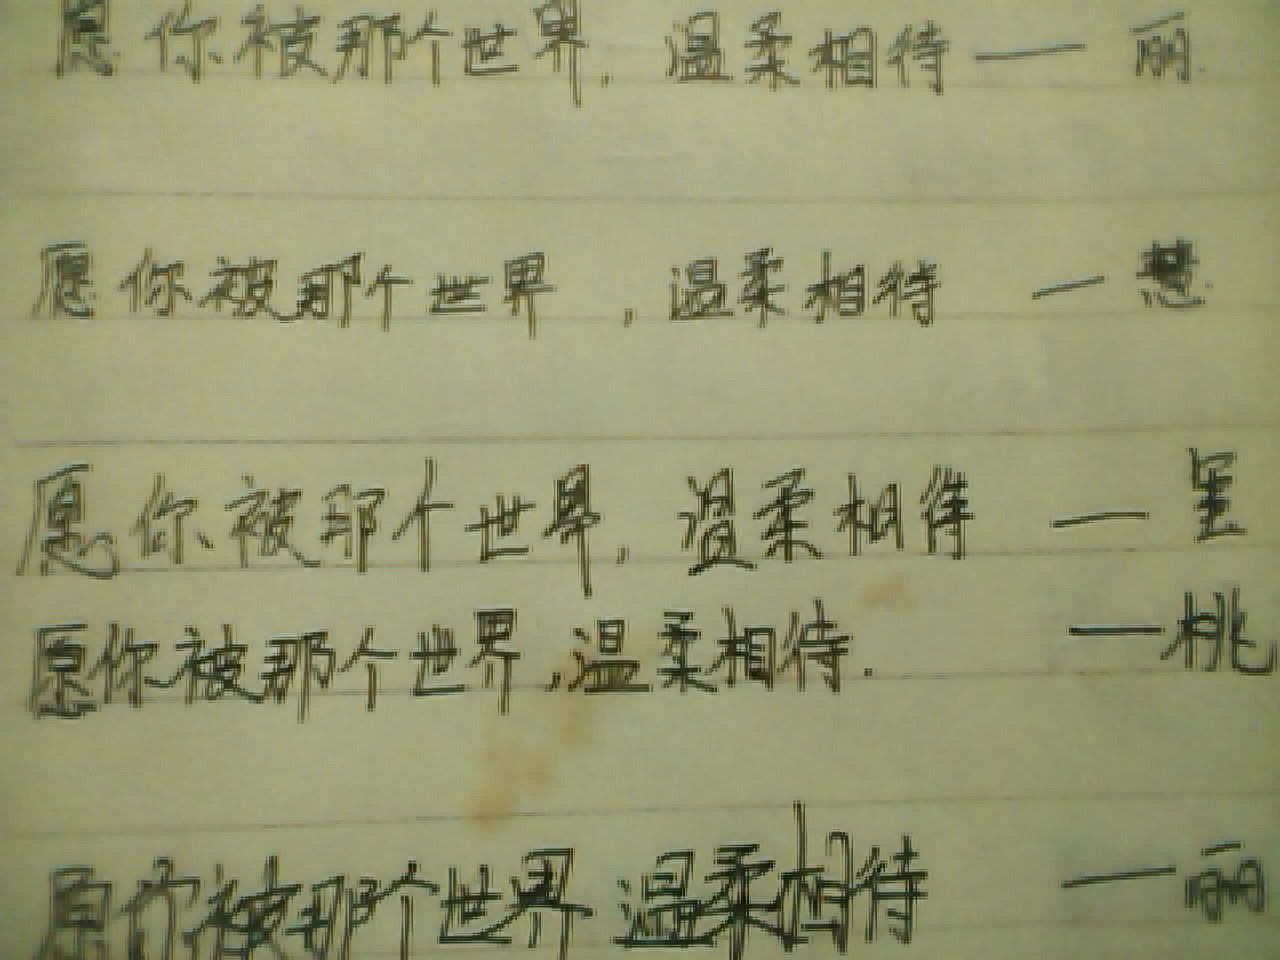 愿你被那个世界,温柔相待——丽.
愿你被那个世界,温柔相待 — 慧
愿你被那个世界,温柔相待 —
愿你被那个世界,温柔相待. —桃
愿你被那个世界 温柔相待 —丽